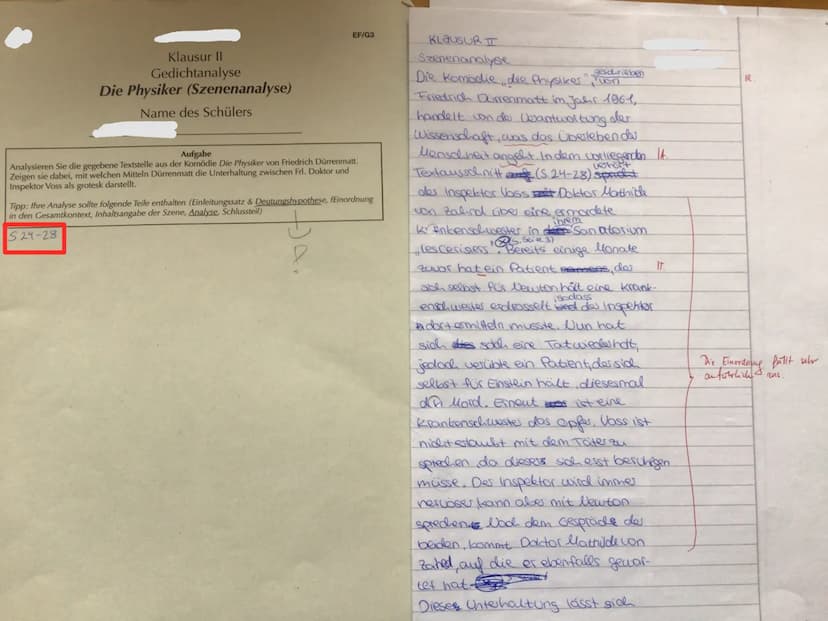 EF/G3
Klausur II
Gedichtanalyse
Die Physiker (Szenenanalyse)
Name des Schülers
Aufgabe
Analysieren Sie die gegebene Textstelle aus der Komödie Die Physiker von Friedrich Dürrenmatt.
Zeigen sie dabei, mit welchen Mitteln Dürrenmatt die Unterhaltung zwischen Frl. Doktor und
Inspektor Voss als grotesk darstellt.
Tipp: Ihre Analyse sollte folgende Teile enthalten (Einleitungssatz & Deutungshypothese, Einordnung
in den Gesamtkontext, Inhaltsangabe der Szene, Analyse, Schlussteil)
S 24-28
KLAUSUR II
Szenenanalyse
Die Komödie „die Physiker", geschrieben von
Friedrich Dürrenmatt im Jahr 1961,
handelt von der Verantwortung der
Wissenschaft, was das Überleben der
Menschheit angeht. In dem vorliegenden
Textausschnitt (S.24-28) verhört
der Inspektor Voss Doktor Mathilde
von Zahnd über eine ermordete
Krankenschwester in ihrem Sanatorium
„les Cerisiers". Bereits einige Monate
zuvor hat ein Patient, der
sich selbst für Newton hält eine Krank-
enschwester erdrosselt sodass der Inspektor
dort ermitteln musste. Nun hat
sich solch eine Tat wiederholt,
jedoch verübte ein Patient, der sich
selbst für Einstein hält, diesesmal
den Mord. Erneut ist eine
Krankenschwester das Opfer. Voss ist
nicht erlaubt mit dem Täter zu
sprechen, da dieser sich erst beruhigen
müsse. Der Inspektor wird immer
nervöser, kann aber mit Newton
sprechen. Nach dem Gespräch der
beiden, kommt Doktor Mathilde von
Zahnd, auf die er ebenfalls gewar-
tet hat
Diese Unterhaltung lässt sich
R
Die Einordnung fällt sehr
ausführlich aus.